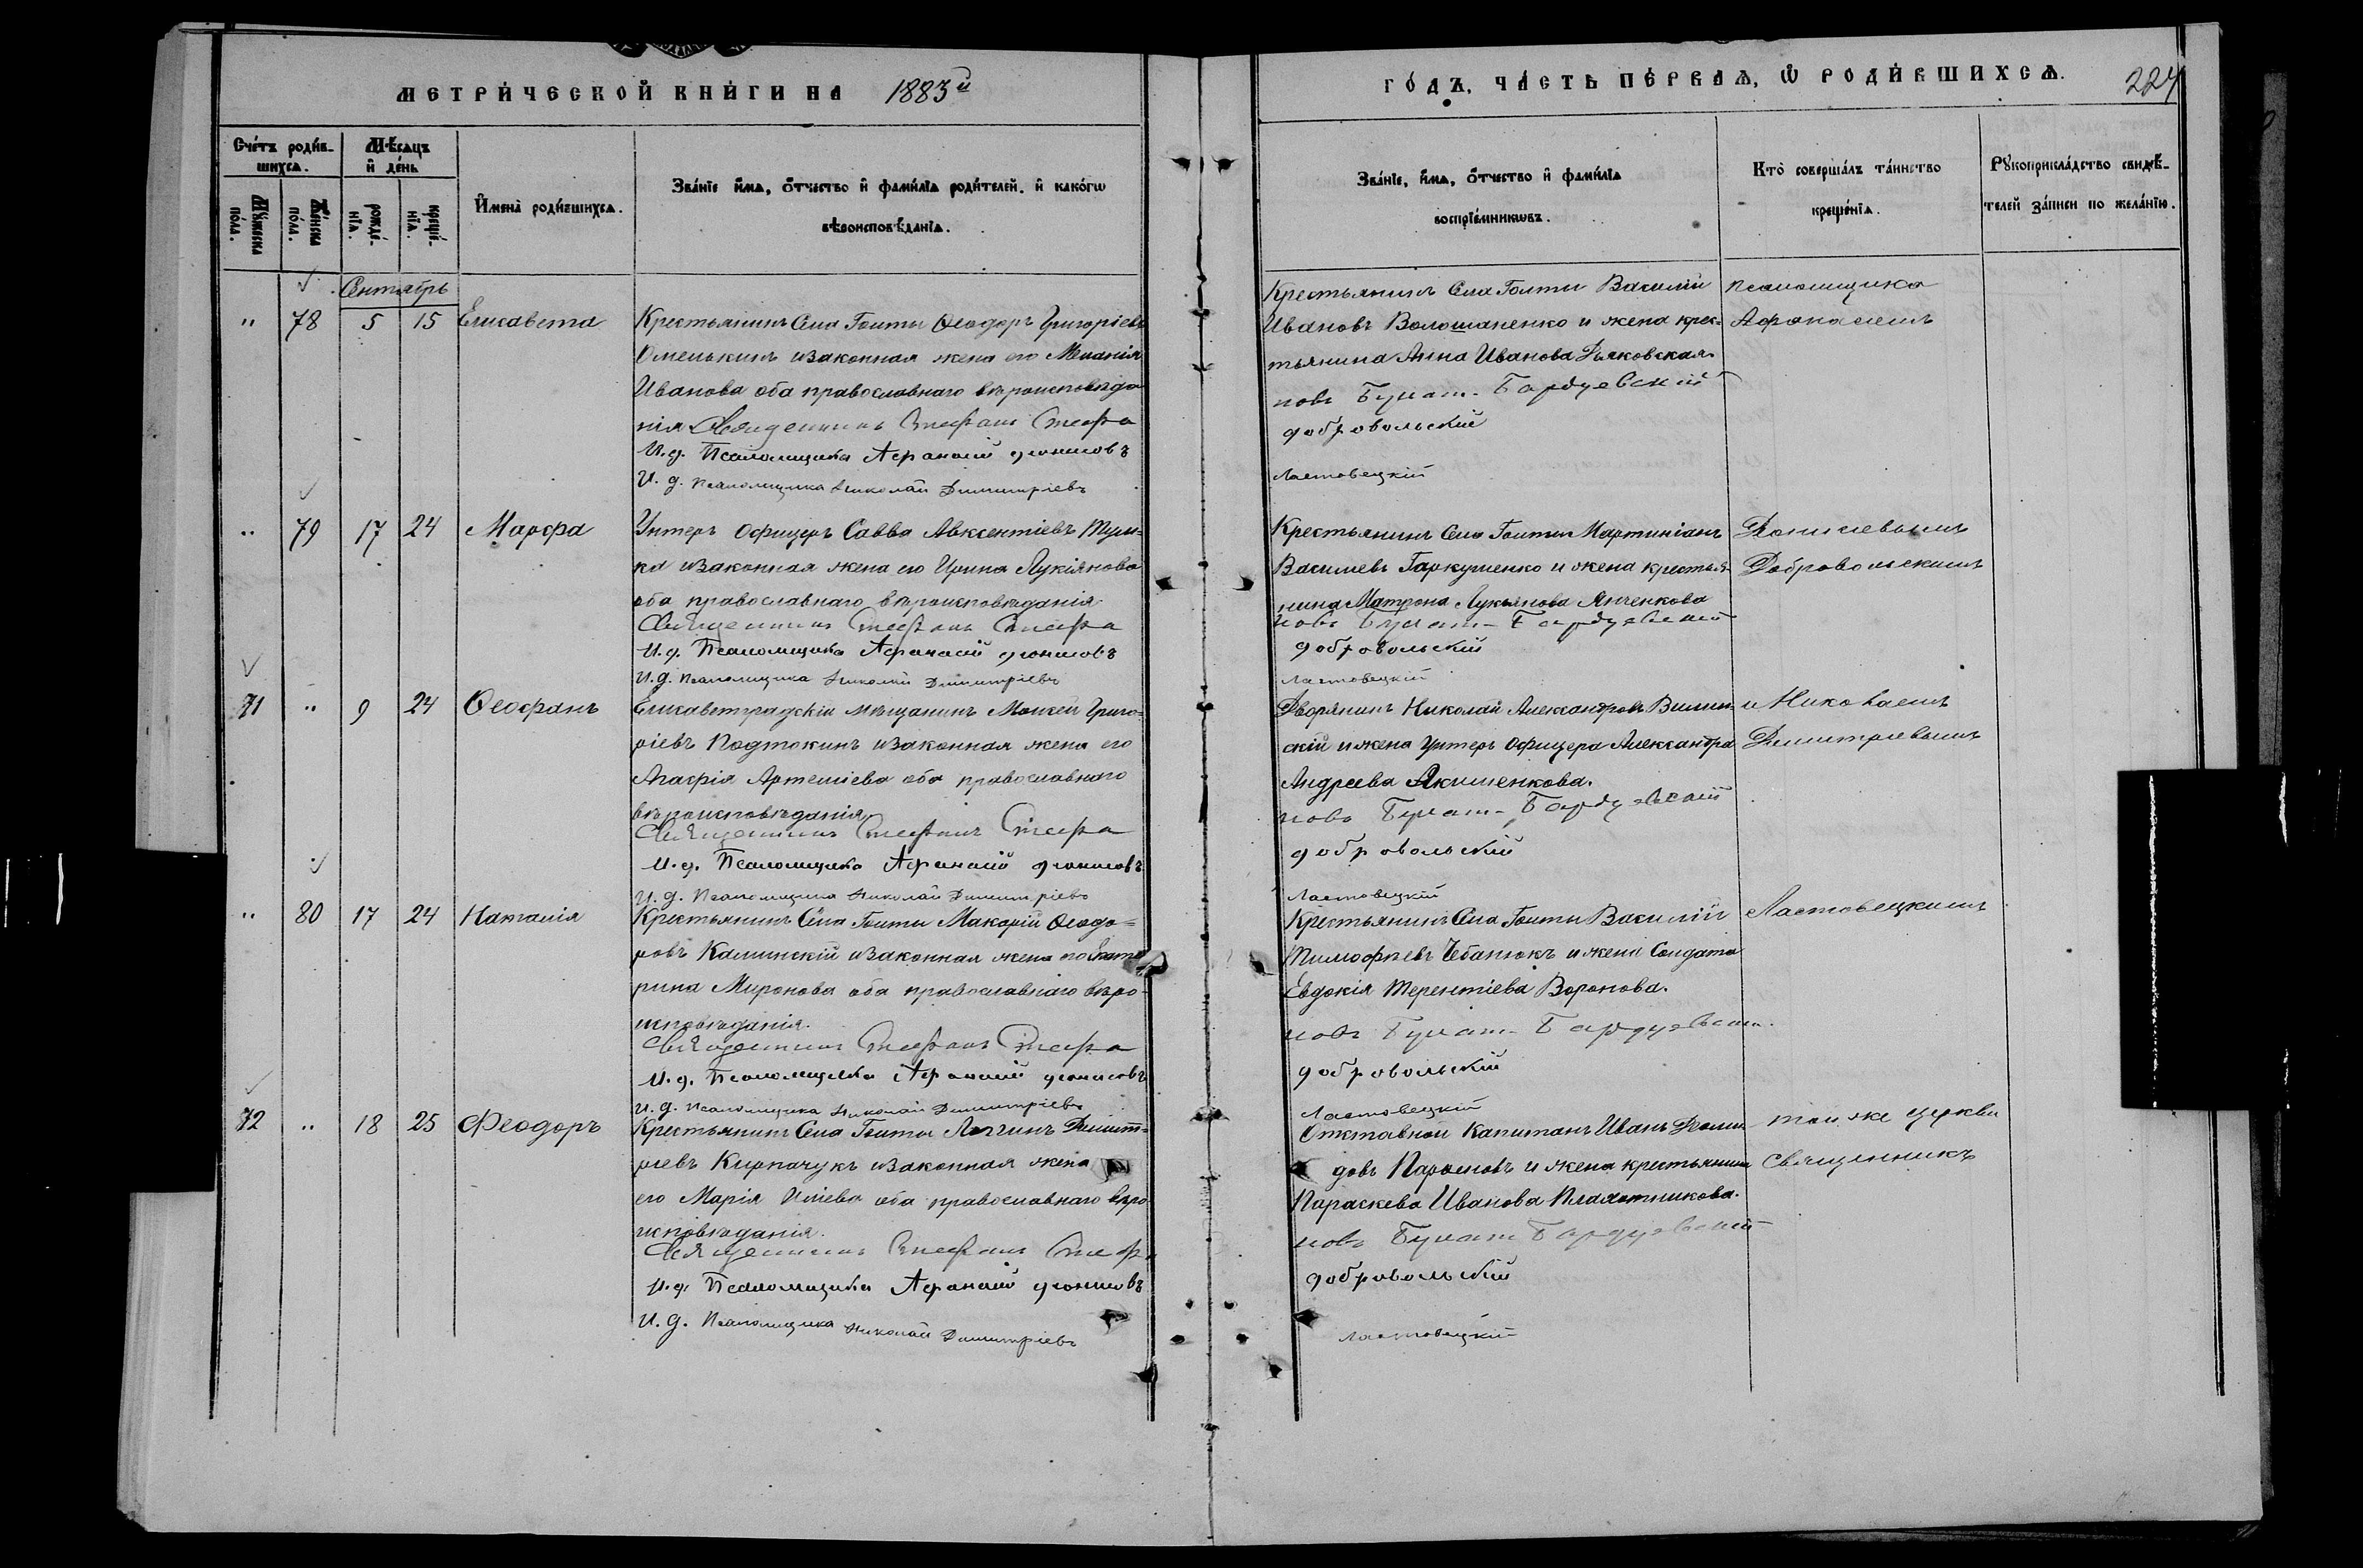 МЕТРИ́ЧЕСКОЙ КНИ́ГИ НА 1883й
Сче́тъ роди́в-
шихсѧ.
Мѣ́сѧцъ
и҆ де́нь
Мꙋ́жеска
по́ла.
Же́нска
по́ла.
рожде́-
нїѧ.
креще́-
нїѧ.
И҆мена̀ роди́вшихсѧ.
Зва́нїе и҆́мѧ, ѻ҆́тчество и҆ фами́лїѧ роди́телей, и҆ како́гѡ
вѣроисповѣ́данїѧ.
Сентябрь
" 78 5 15 Елисавета
Крестьянинъ Села Голты Ѳеодоръ Григоріевъ
Омелькинъ и законная жена его Меланія
Иванова оба православнаго вѣроисповѣда
нія Священникъ Стефанъ
И. д. Псаломщика Афанасій
И. д. Псаломщика Николай Димитріевъ
" 79 17 24 Марфа
Унтеръ Офицеръ Савва Авксентіевъ
ка и законная жена его Ирина Лукіянова
оба православнаго вѣроисповѣданія.
Священникъ Стефанъ
И. д. Псаломщика Афанасій
И. д. Псаломщика Николай Димитріевъ
71 " 9 24 Ѳеофанъ
Елисаветградскій мѣщанинъ Моисей Григо=
ріевъ Подтокинъ и законная жена его
Агафія Артеміева оба православнаго
вѣроисповѣданія
Священникъ Стефанъ
И. д. Псаломщика Афанасій
И. д. Псаломщика Николай Димитріевъ
" 80 17 24 Наталія
Крестьянинъ Села Голты Макарій Ѳеодо=
ровъ Калинскій и законная жена его Екате
рина Миронова оба православнаго вѣро-
исповѣданія.
Священникъ Стефанъ
И. д. Псаломщика Афанасій
И. д. Псаломщика Николай Димитріевъ
72 " 18 25 Феодоръ
Крестьянинъ Села Голты Логгинъ Димит=
ріевъ Кирпачукъ и законная жена
его Марія Иліева оба православнаго вѣро
исповѣданія.
Священникъ Стефанъ
И. д. Псаломщика Афанасій
И. д. Псаломщика Николай Димитріевъ
ГО́ДЪ, ЧА́СТЬ ПЕ́РВАѦ, Ѡ҆ РОДИ́ВШИХСѦ. 224
Зва́нїе, и҆́мѧ, ѻ҆́тчество и҆ фами́лїѧ
воспрїе́мникѡвъ.
Кто̀ соверша́лъ та́инство
креще́нїѧ.
Рꙋкоприкла́дство свидѣ́-
телей за́писи по жела́нїю.
Крестьянинъ Села Голты Василій
Ивановъ Волошаненко и жена крес-
тьянина Анна Иванова Дьяковская.
новъ Булат-
добровольскій
Ластовецкій
псаломщика
Афанасіемъ
Крестьянинъ Села Голты Мартиніанъ
Василіевъ Гаркушенко и жена крестья-
нина Матрона Лукьянова Янченкова
новъ Булат-
добровольскій
Ластовецкій
Добровольскимъ
Дворянинъ Николай Александровъ Вилин-
скій и жена Унтеръ Офицера Александра
Андреева Акименкова.
новъ Булат-
добровольскій
Ластовецкій
и Николаемъ
Димитріевымъ
Крестьянинъ Села Голты Василій
Тимофѣевъ Чебанюкъ и жена Солдата
Евдокія Терентіева Воронова.
новъ Булат-
добровольскій
Ластовецкій
Ластовецкимъ
Отставной Капитанъ Иванъ
довъ Парѳеновъ и жена крестьянина
Параскева Иванова Плахотникова.
новъ Булат
добровольскій
Ластовецкій
той же церкви
Священникъ